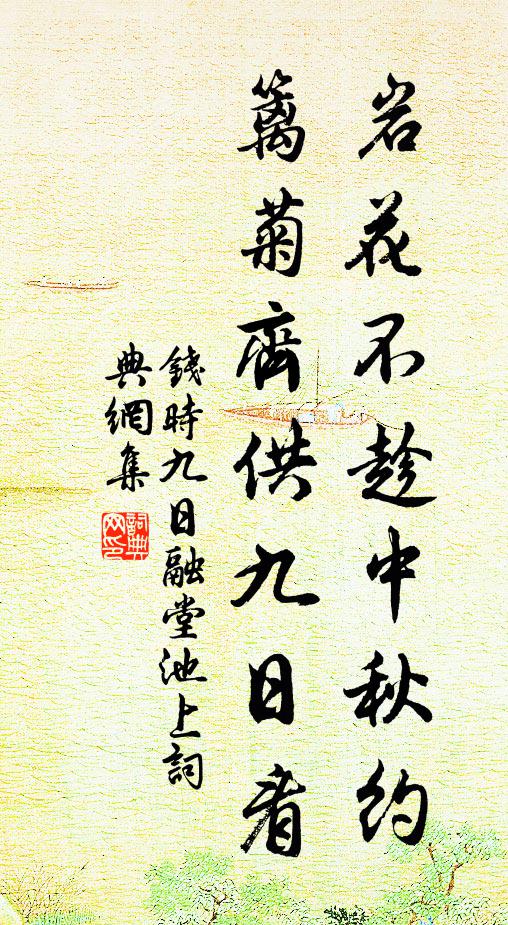 岩花不趁中秋约
篱菊齊供九日看
錢時九日融堂池上詞
典網集
詞典
网印